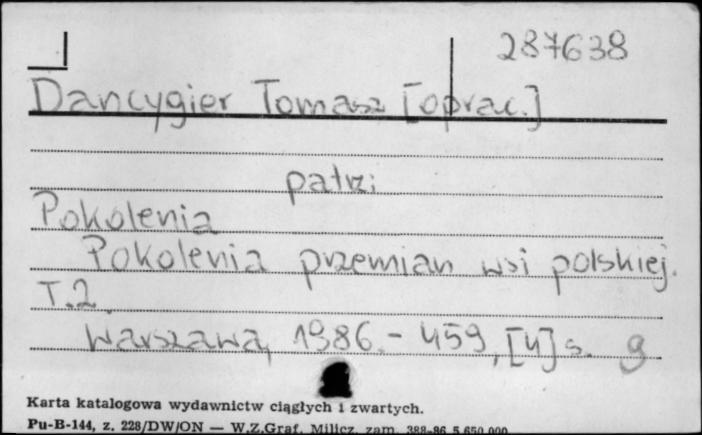 287638
Dancygier Tomasz [oprac.]
patrz:
Pokolenia
Pokolenia przemian wsi polskiej.
T.2.
Warszawa, 1986.- 459, [4] s. g
Karta katalogowa wydawnictw ciągłych i zwartych.
Pu-B-144, z. 228/DW/ON — W.Z.Graf. Milicz, zam. 388-86 5.650.000